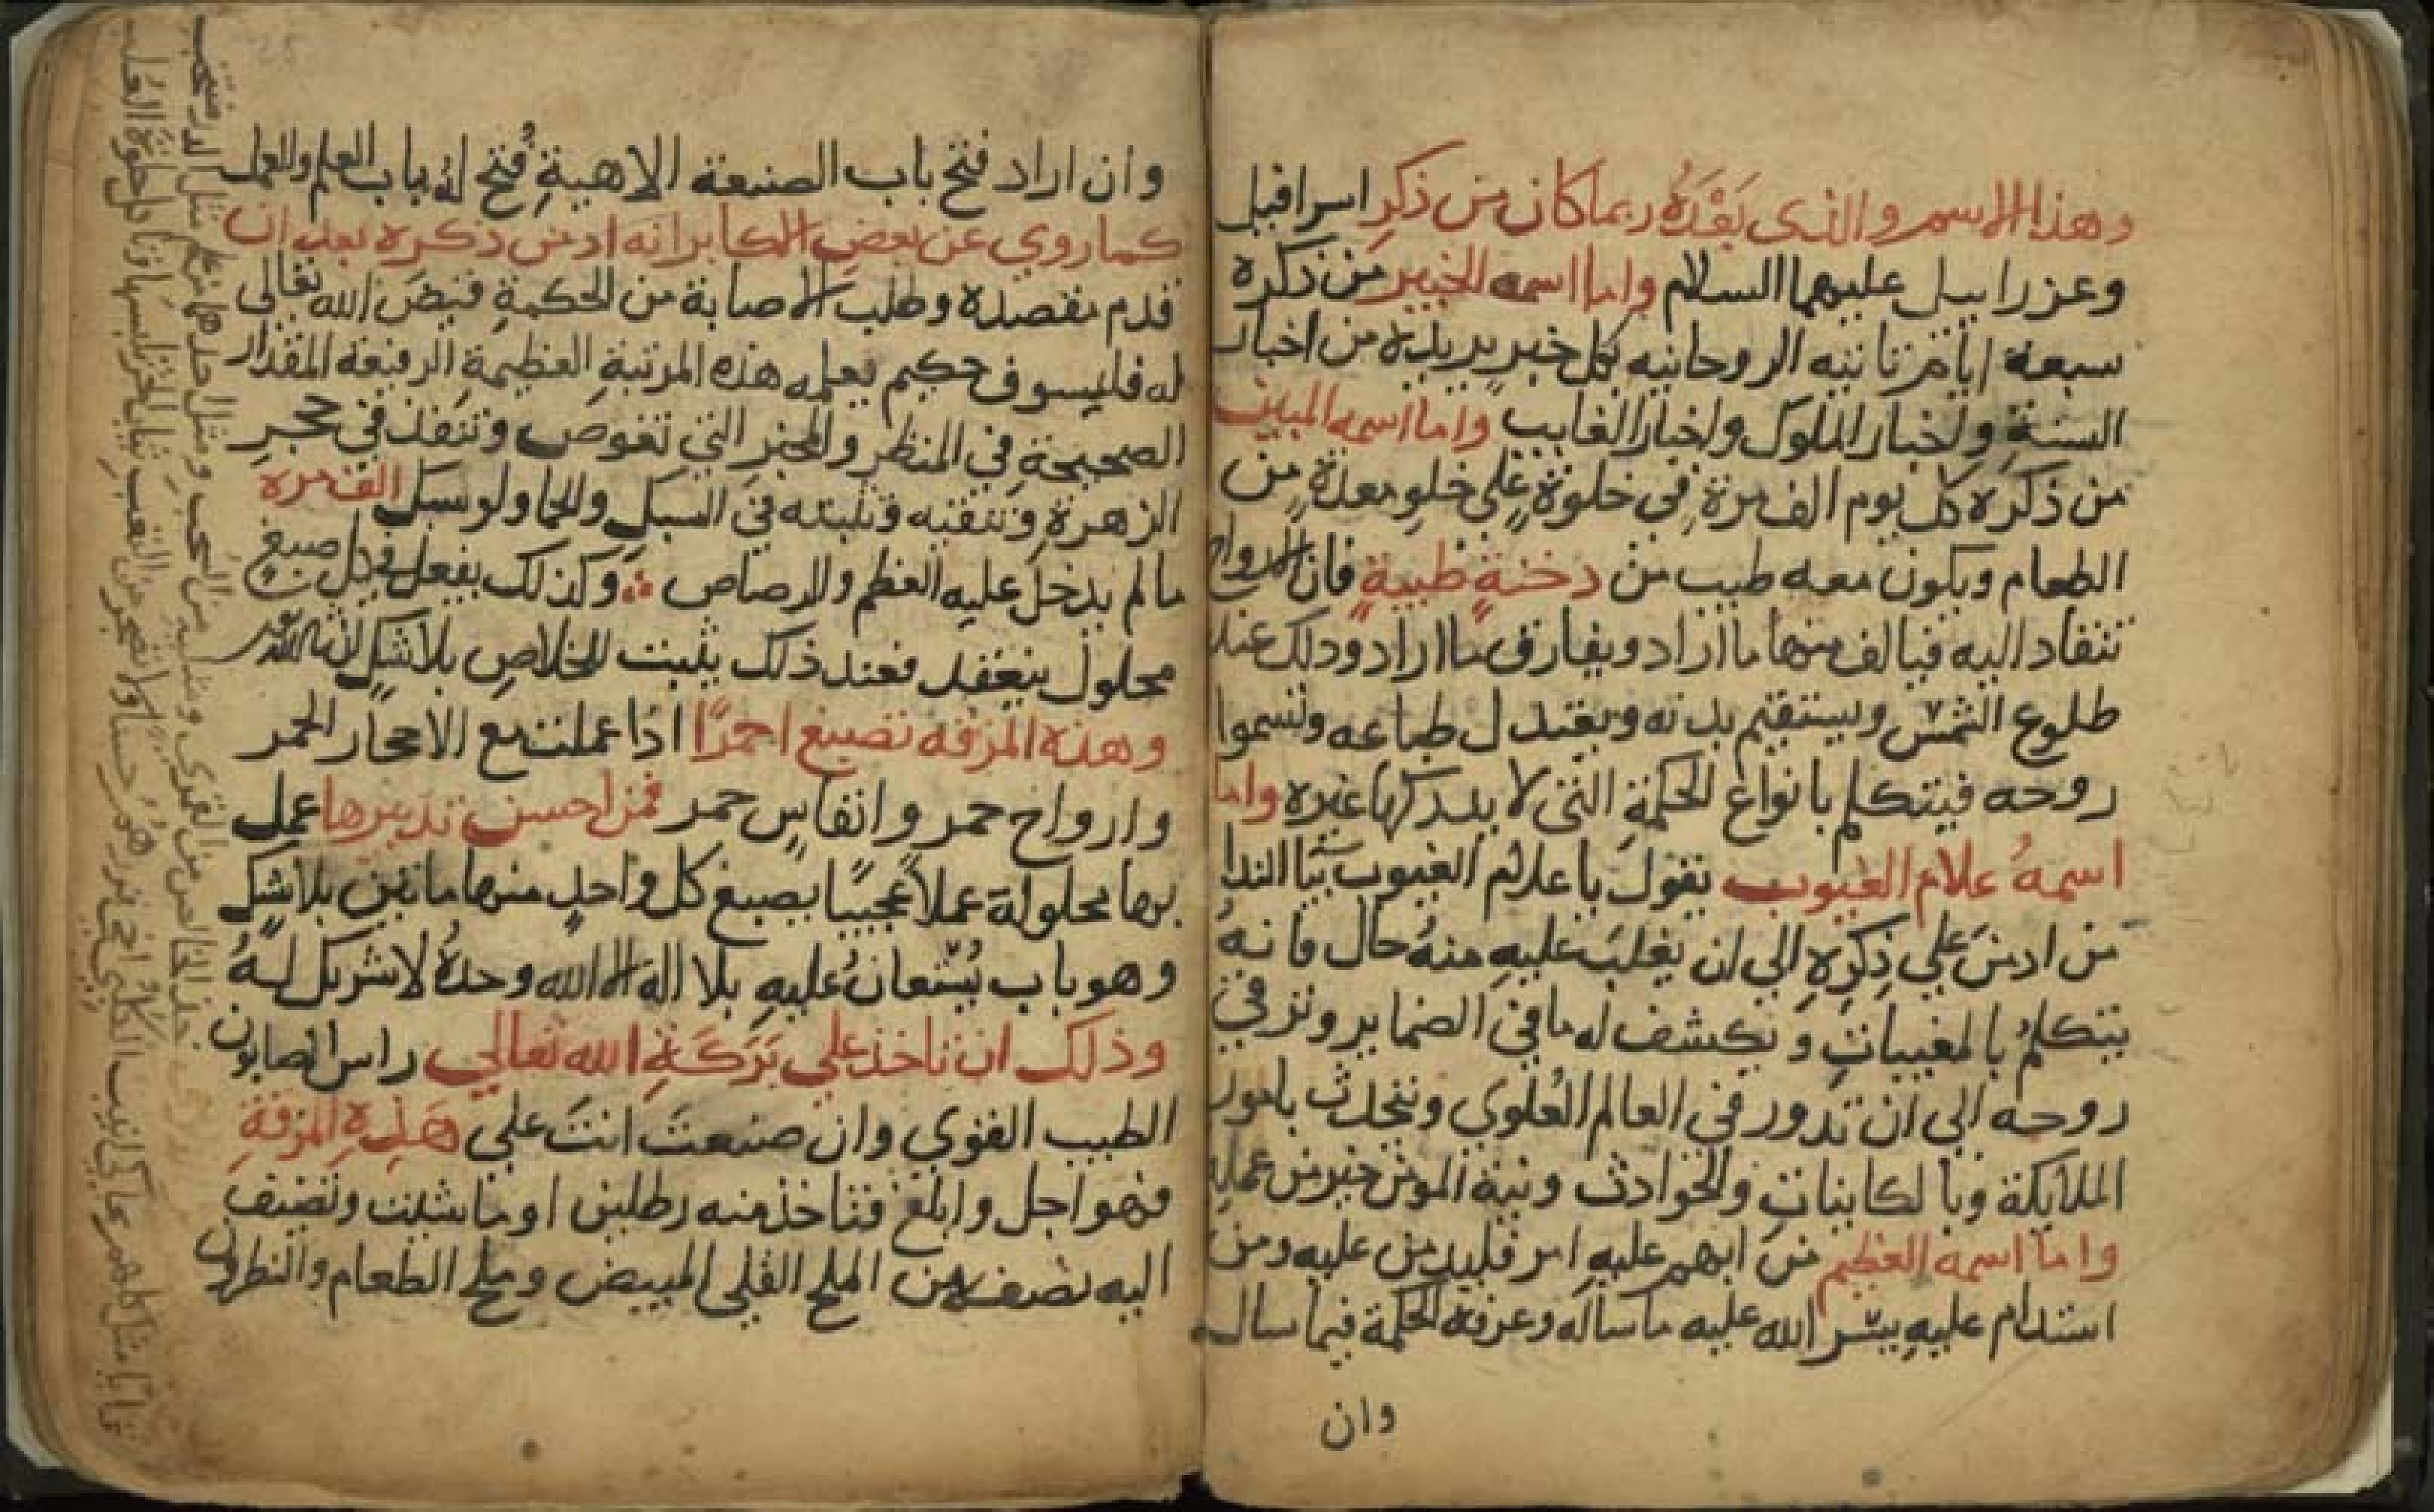 وهذا الاسم والذي بَعْدَهُ ربما كان من ذكرِ اسرافيل
وعزراييل عليهما السلام واما اسمه الخبير من ذكره
سبعة ايام تاتيه الروحانيه بكل خبرٍ يريده من اخبار
السنةِ واخبار الملوك واخبار الغايب واما اسمه المبين
من ذكره كل يوم الف مرة في خلوةٍ على خلوِ معدةٍ من
الطعام ويكون معه طيب من دخنةٍ طيبةٍ فان الارواح
تنقاد اليه فيالف منها ما اراد ويفارق ما اراد وذلك عند
طلوع الشمس ويستقيم بدنه ويعتدل طباعه وتسموا
روحه فيتكلم بانواع الحكمةِ التي لا يدركها غيره واما
اسمهُ علام الغيوب يقول يا علام الغيوب بيا الندا
من ادمنَ على ذِكرِهِ الي ان يغلبَ عليهِ منهُ حال فانهُ
يتكلمُ بالمغيباتِ ويكشف له ما في الضماير وترقي
روحه الى ان تدور في العالم العُلوي وتتحدث بامور
الملايكة وبالكايناتِ والحوادث ونية المومن خير من عمله
واما اسمه العظيم من ابهم عليه امر فليدمن عليه ومن
استدام عليهِ يسّر الله عليه ما ساله وعرفه الحكمة فيما سال
وان
وان اراد فتح باب الصنعة الالاهيةِ فُتح لهُ باب العلم والعمل
كما روي عن بعض الاكابر انه ادمن ذكره بعد ان
قدم بقصده وطلب الاصابة من الحكمةِ فقيضَ الله تعالى
له فليسوف حكيم يعلمه هذه المرتبةِ العظيمةِ الرفيعة المقدار
الصحيحةِ في المنظرِ والمخبرِ التي تغوص وتنفذ في حجرِ
الزهرةِ وتنقيه وتثبته في السبكِ والحما ولو سبك الف مره
ما لم يدخل عليه العظم والرصاص وكذلك يفعل في كل صبغٍ
محلول ينعقد فعند ذلك يثبت للخلاصِ بلا شكٍ
وهذه المزقه تصبغ احمرًا اذا عملت مع الاحجار الحمر
وارواح حمر وانفاسٍ حمر فمن احسن تدبيرها عمل
بها محلولة عملاً عجيبًا يصبغ كل واحدٍ منها مايتين بلا شكٍ
وهو باب يُستعانُ عليهِ بلا اله الا الله وحدهُ لا شريك لهُ
وذلك ان تاخذ على بَرَكَةِ الله تعالى راس الصابون
الطيب القوي وان صنعتَ انتَ على هَذِهِ المزقةِ
فهو اجل وابلغ فتاخذ منه رطلين او ما شيت وتضيف
اليه نصفه من الملح القلي المبيض وملح الطعام والنطرون